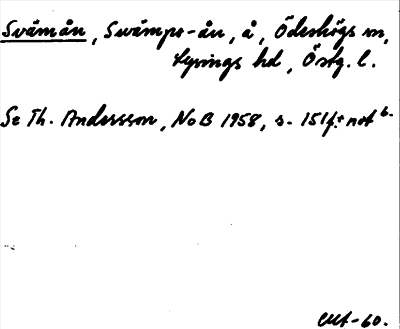 Svämån, Swämpe-ån, å, Ödeshögs sn,
Lysings hd, Östg. l.
Se Th. Andersson, NoB 1958, s. 151 f. + not 6.
-60.